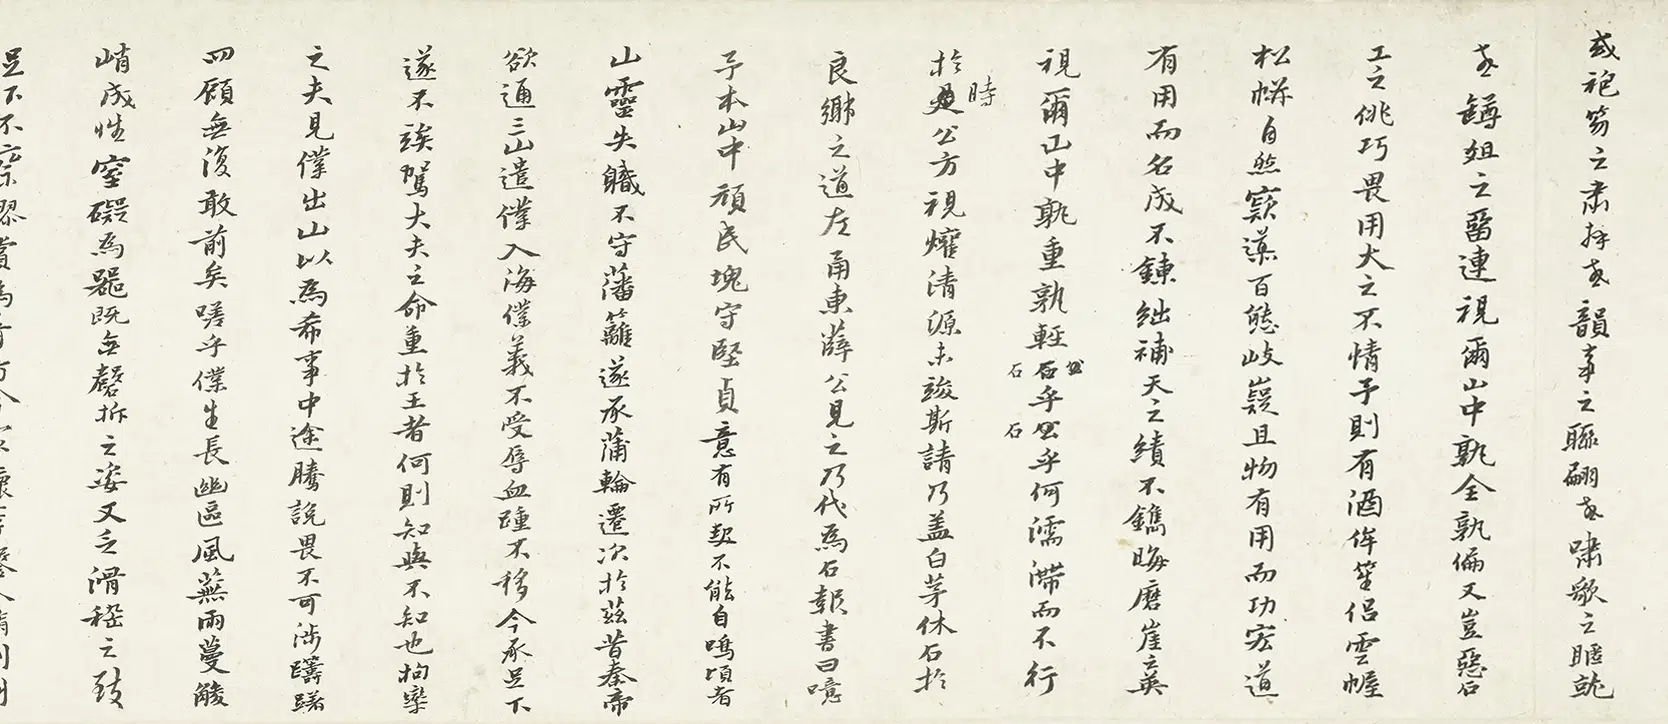 或袍笏之肅拜或韻事之聯翩或嘯歌之睚
或罇俎之留連視爾山中孰全孰偏又豈惡石
工之佻巧畏用大之不情予則有酒侔笙侶雲幄
松幈自然窾漠百態岐嶷且物有用而功宏道
有用而名成不鍊絀補天之績不鐫晦磨崖之英
視爾山中孰重孰輕石乎石乎何濡滯而不行
於時公方視㸌清源未竣斯請乃蓋白茅休石於
良鄉之道左甬東薛公見之乃代為石報書曰噫
予本山中頑民塊守堅貞意有所契不能自鳴頃者
山靈失職不守藩籬遂承蒲輪遷次於茲昔秦帝
欲通三山遣僕入海僕義不受辱血踵不移今承足下
遂不俟駕大夫之命重於王者何則知與不知也拘攣
之夫見僕出山以為希事中途騰說畏不可涉躊躇
四顧無復敢前矣嗟乎僕生長幽區風蕪雨蔓稜
峭成性窒礙為器既無磬折之姿又乏滑稽之致
足下不